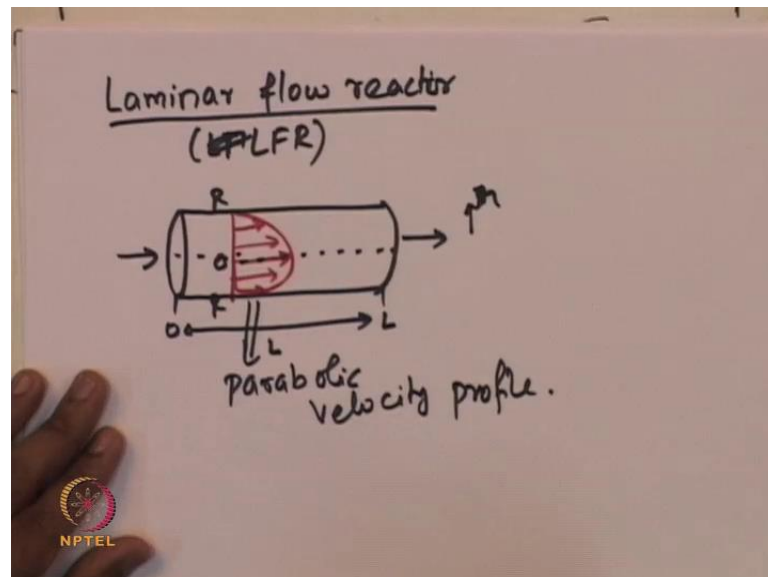 Laminar flow reactor
(LFR)
R
O
R
O L
L
parabolic
velocity profile.
NPTEL